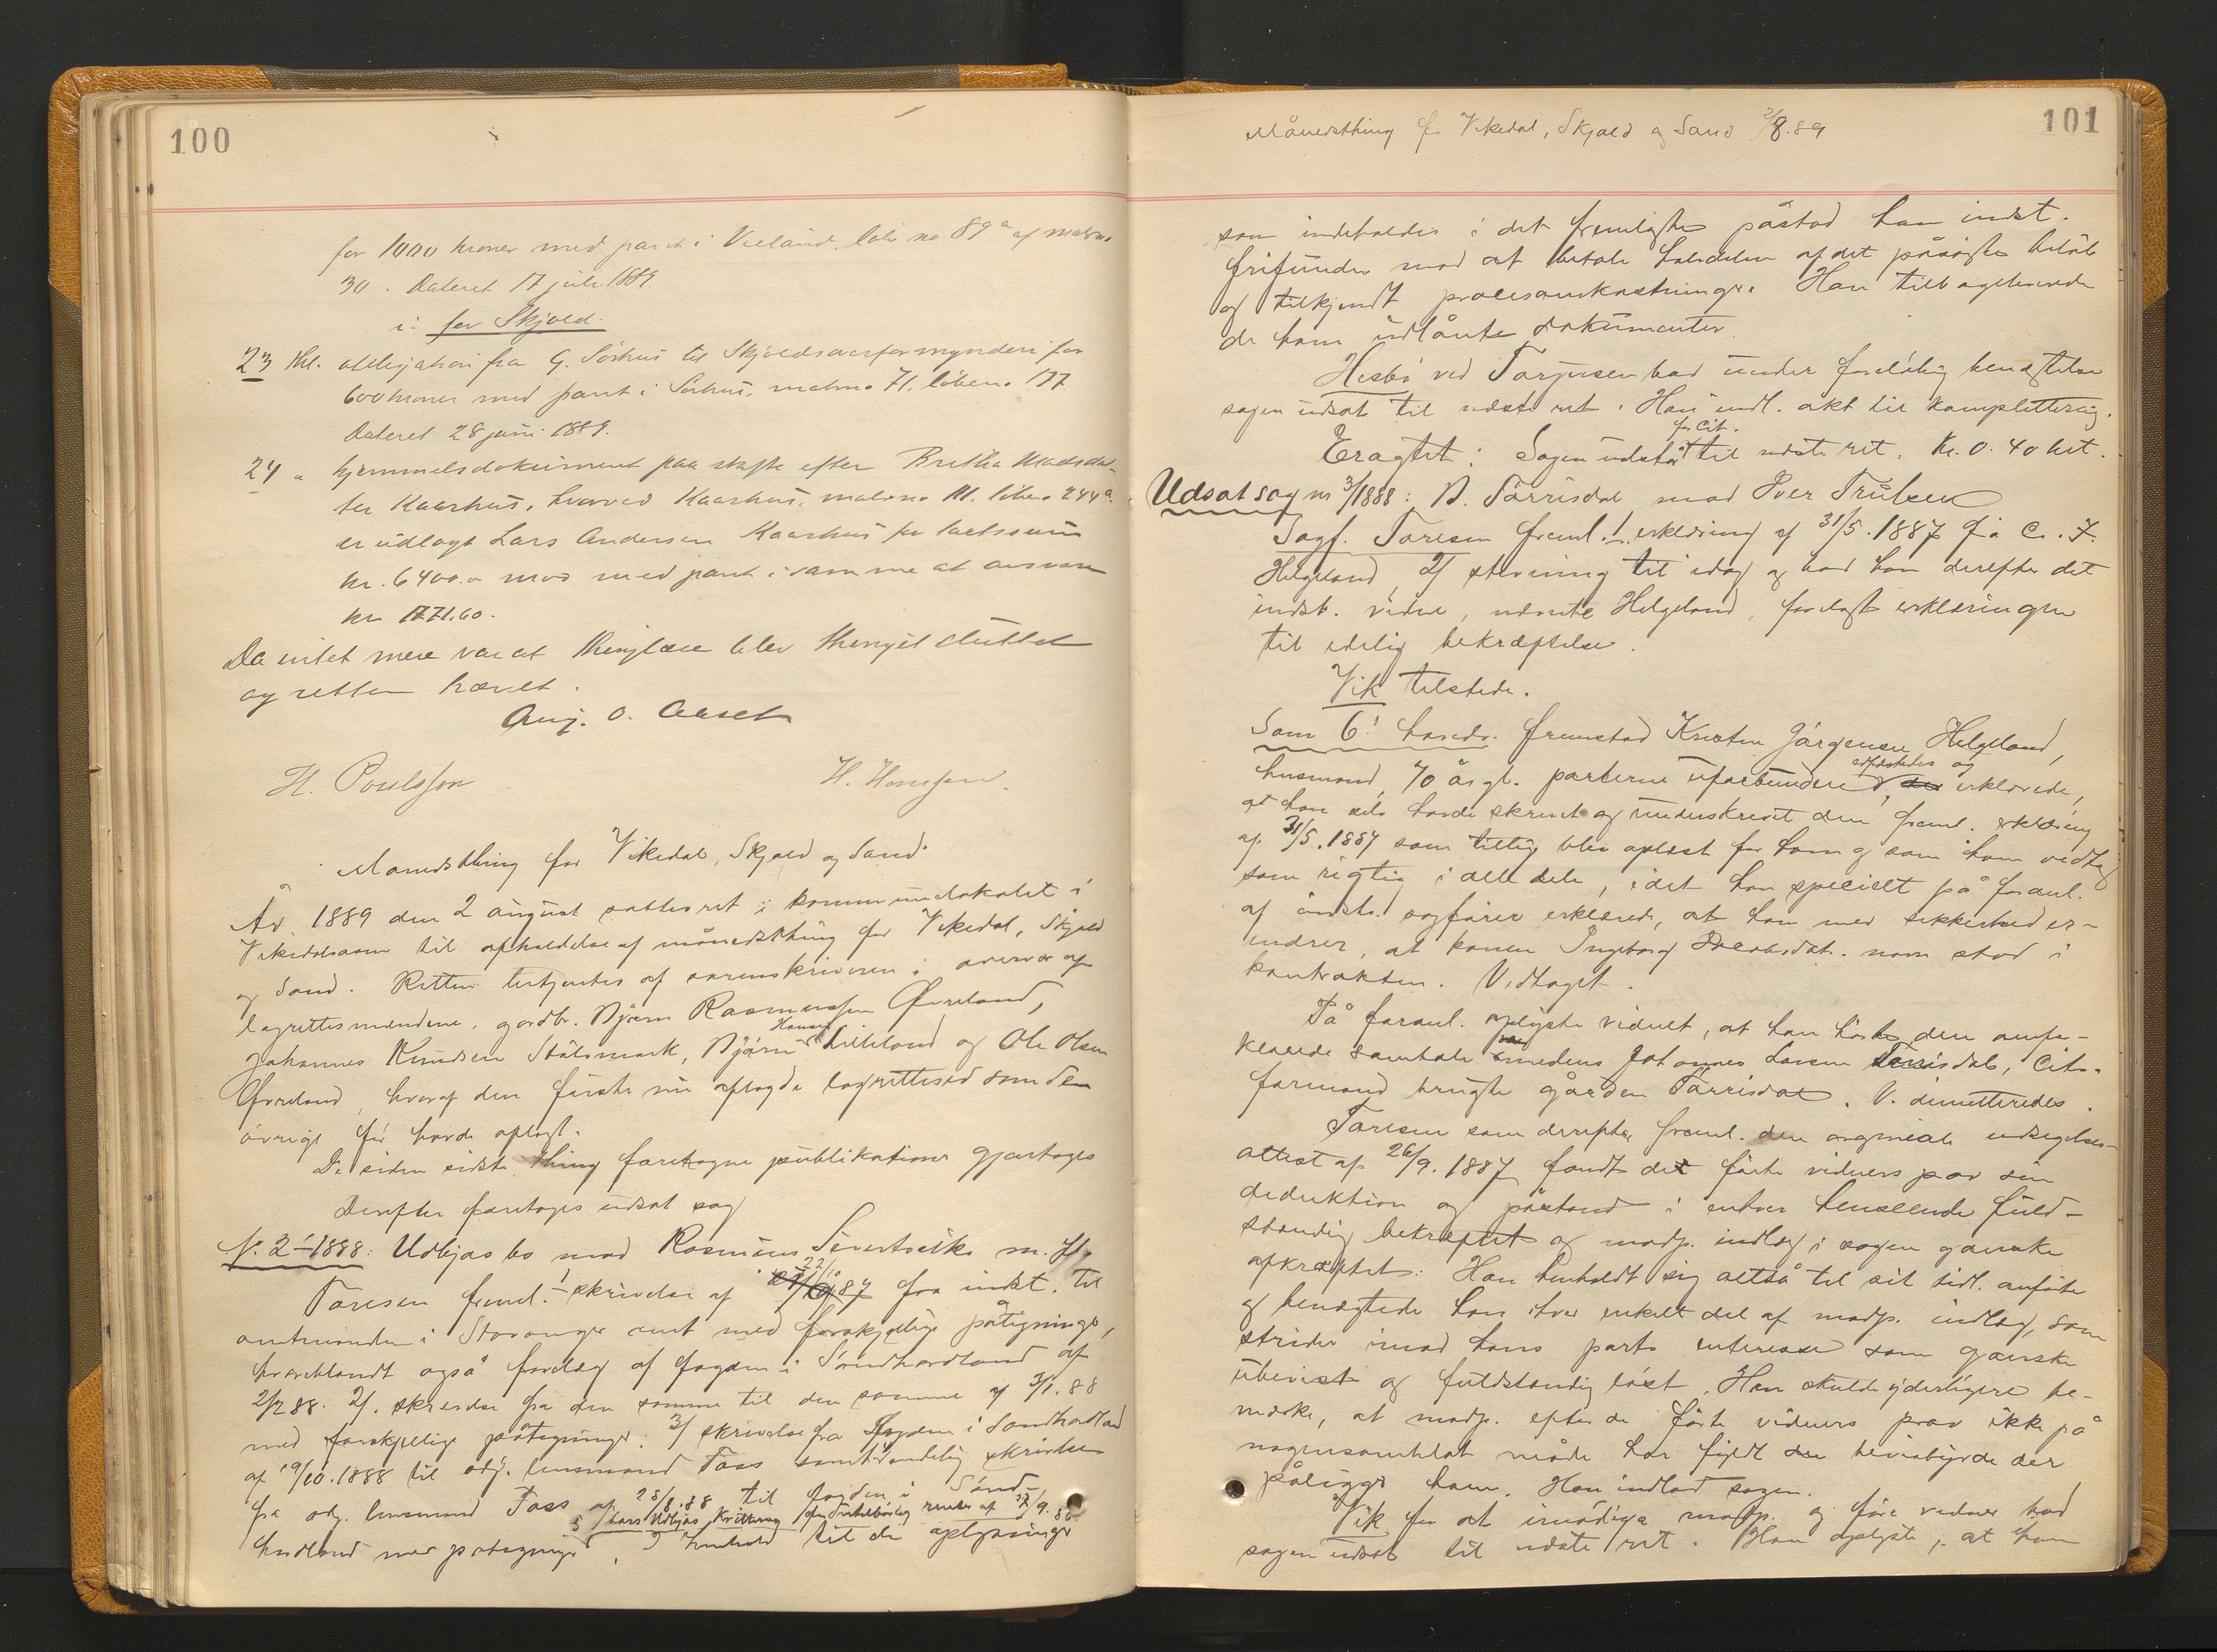 100
for 1000 kroner med pant i Vieland, løbe no 89a af matr.no
30. Dateret 17 juli 1889.
i: for Skjold.
23 Thl. obligation fra G. Sørhus til Skjoldsoverformynderi for
600 kroner med pant i Sørhus, matr.no 71. løbeno 177
Dateret 28 juni 1889.
24 " hjemmelsdokument paa skifte efter Bertha Madsdat-
ter Kaarhus, hvorved Kaarhus, matr.no løbeno 244a.
er udlagt Lars Andersen Kaarhus for taxtsum
kr. 6400.o mod med pant i samme at ansvare
kr 1771.60.
Da intet mere var at thinglæse blev thinget sluttet
og retten hævet.
Aug. O. Aaset
H. Poulsson H. Hanssen.
Maanedsthing for Vikedal, Skjold og Sand.
År 1889 den 2 august sattes ret i kommunelokalet i
Vikedalsøren til afholdelse af månedsthing for Vikedal, Skjold
og Sand. Retten betjentes af sorenskriveren i overvær af
lagrettesmændene, gardbr. Bjørn Rasmussen Øvreland,
Johannes Knudsen Stølsmark, Bjørn Hansen Lilleland og Ole Olsen
Øvreland, hvoraf den første nu aflagde lagrettesed som de
øvrige før havde aflagt.
De siden sidste thing foretagne publikationer gjentoges
Derefter foretoges udsat sag
No. 2-1888: Udbjøs bo mod Rasmus Sivertsviks m. fl.
Toresen freml. 1 skrivelse af 87 fra indst. til
amtmanden i Stavanger amt med forskjellige påtegninger,
hvoriblandt også forelæg af fogden i Søndhordland af
2/2 88. 2/. skrivelse fra den samme til den samme af 3/1. 88
med forskjellige påtegninger. 3/ skrivelse fra fogden i Søndhordland
af 19/10. 1888 til adj. lensmand Foss samt endelig skrivelse
fra adj. lensmand Foss af 28/8.88 til fogden i Sønd-
5/ Lars Udbjøs kvittering for rente af 9. 86
hordland med påtegninger, I henhold til de oplysninger
Månedsthing for Vikedal, Skjold og Sand 2/8.89
101
som indeholdes i det fremlagte påstod han indst.
frifunden mod at betale halvdelen af det påsøgte beløb
og tilkjendt procesomkostninger. Han tilbageleverede
de ham udlånte dokumenter.
Hesbø ved Torjusen bad under foreløbig benægtelse
sagen udsat til næste ret. Han indl. akt til komplettering.
for Cit.
Eragtet: Sagen udstår til næste ret. Kr. 0.40 bet.
Udsat sag nr 3/1888: B. Tørrisdal mod Iver Trulsen
Sagf. Toresen freml. 1. erklæring af 31/5. 1887 fra C. J.
Helgeland, 2/ stevning til idag og bad han derefter det
indst. vidne, nævnte Helgeland, forelagt erklæringen
til edelig bekræftelse.
Vik tilstede.
Som 6. hovedv. fremstod Kristen Jørgensen Helgeland,
husmand, 70 år gl. parterne uforbunden, edfæstedes og erklærede,
at han selv havde skrevet og underskrevet den freml. erklæring
af 31/5. 1887 som tillige blev oplæst for ham og som han vedtog
som rigtig i alle dele, idet han specielt på foranl.
af indst.s sagfører erklærede, at han med sikkerhed er-
indrer, at konen Ingeborg Jacobsdat. navn stod i
kontrakten. Vedtaget.
På foranl. oplyste vidnet, at han hørte den omfor-
klarede samtale medens Johannes Larsen Tørrisdal, Cits.
formand brugte gården Tørrisdal. V. dimitteredes.
Toresen som derefter freml. den orginale udsigelses-
attest af 26/9. 1887 fandt det førte vidners prov sin
deduktion og påstand i enhver henseende fuld-
stændig bekræftet og modp. indlæg i sagen ganske
afkræftet: Han henholdt sig altså til sit tidl. anførte
og benægtede hans hver enkelt del af modp. indlæg, som
strider imod hans parts interesse som ganske
ubevist og fuldstændig løst. Han skulde yderligere be-
mærke, at modp. efter de førte vidners prov ikke på
nogensomhelst måde har fyldt den bevisbyrde der
påligger ham. Han indlod sagen.
Vik for at imødegå modp. og føre vidner bad
sagen udsat til næste ret. Han oplyste, at han